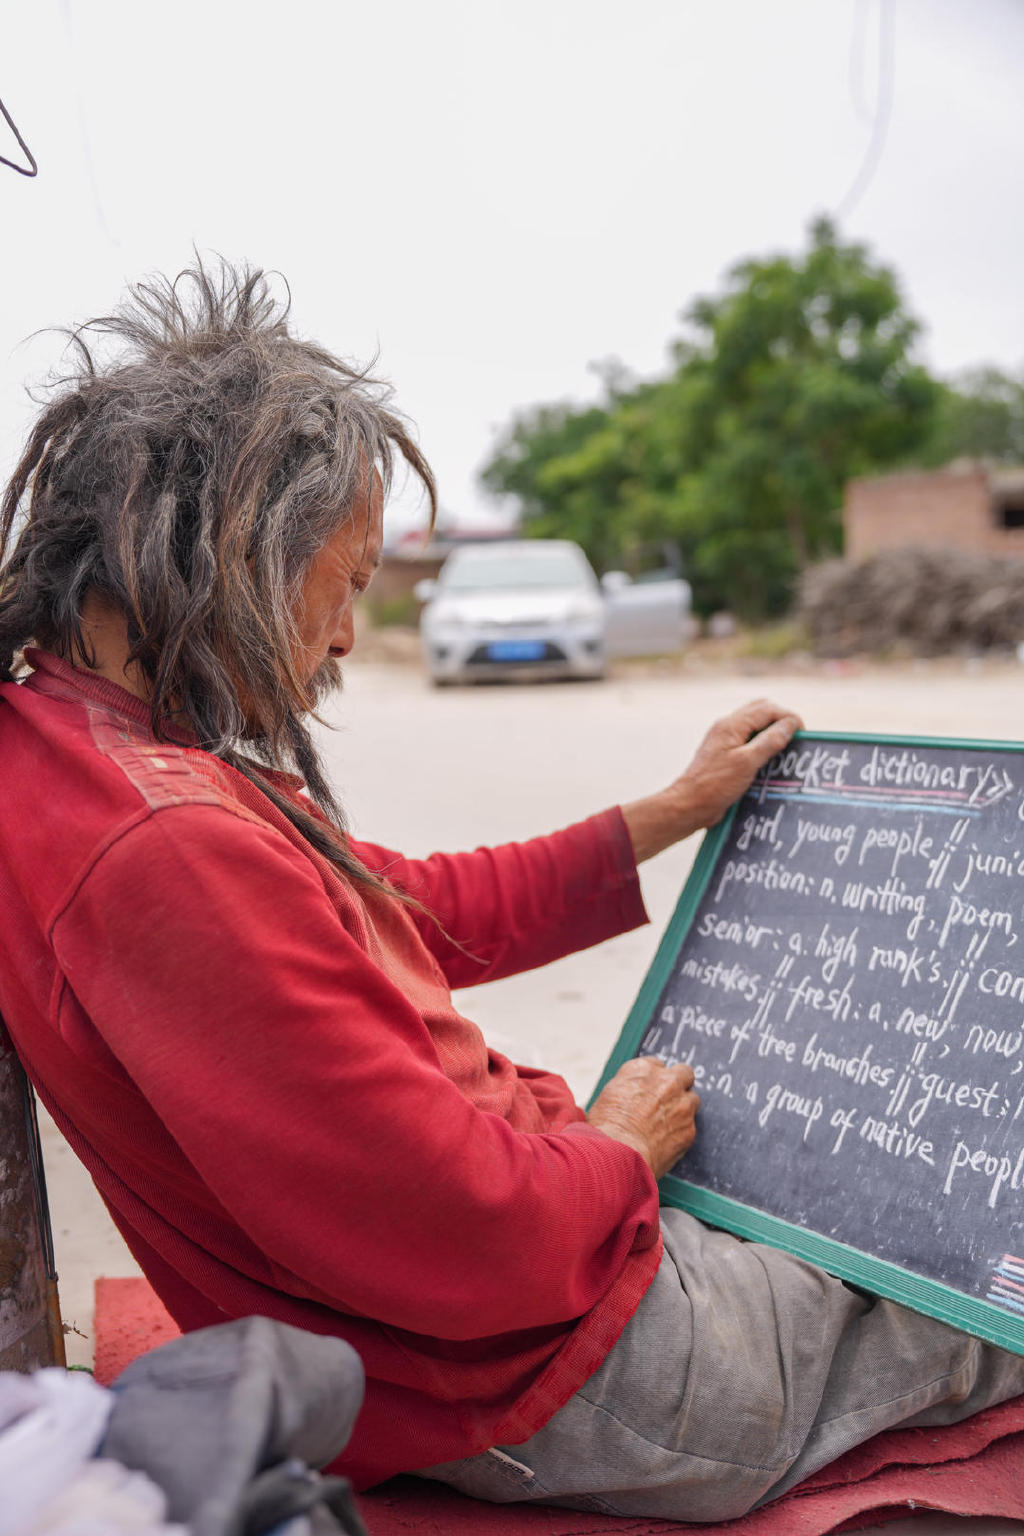 pocket dictionary》
girl, young people,‖ juni
position: n. writting, poem,
senior: a. high rank's,‖ con
mistakes,‖ fresh: a. new, now,
a piece of tree branches,‖ guest:
‖ : n. a group of native people